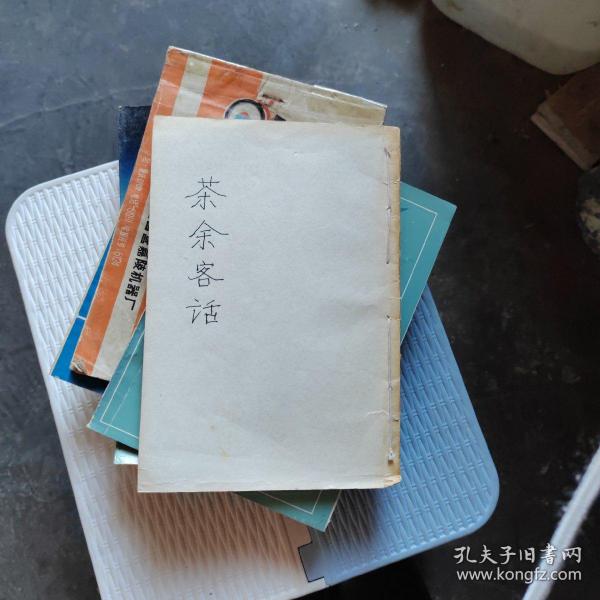 茶余客话
嘉陵机器厂
孔夫子旧書网
www.kongfz.com